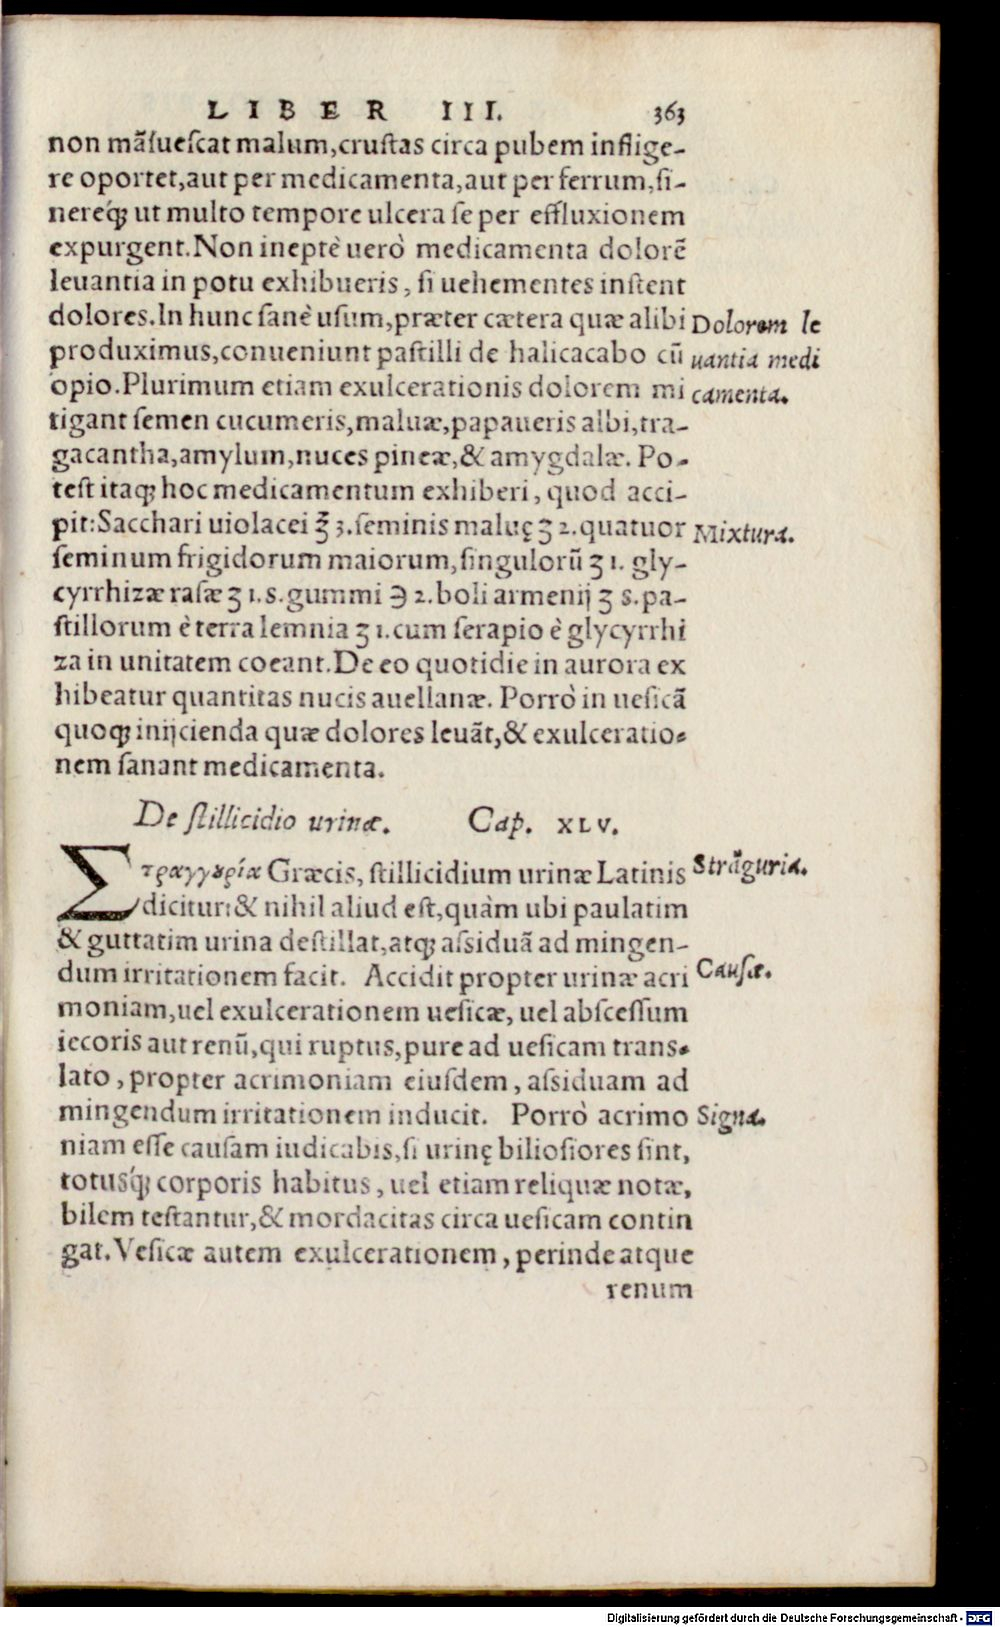 LIBER III. 363
non mãſueſcat malum,cruſtas circa pubem inflige-
re oportet,aut per medicamenta,aut per ferrum,ſi-
nereq́ꝫ ut multo tempore ulcera ſe per effluxionem
expurgent.Non ineptè uerò medicamenta dolorẽ
leuantia in potu exhibueris, ſi uehementes inſtent
dolores.In hunc ſanè uſum,præter cætera quæ alibi
Dolorem le
produximus,conueniunt paſtilli de halicacabo cũ
uantia medi
opio.Plurimum etiam exulcerationis dolorem mi
camenta.
tigant ſemen cucumeris,maluæ,papaueris albi,tra-
gacantha,amylum,nuces pineæ,& amygdalæ. Po-
teſt itaqꝫ hoc medicamentum exhiberi, quod acci-
pit:Sacchari uiolacei ℥ 3.ſeminis maluę ʒ 2.quatuor
Mixtura.
ſeminum frigidorum maiorum,ſingulorũ ʒ 1. gly-
cyrrhizæ raſæ ʒ 1.s.gummi ℈ 2.boli armenij ʒ s.pa-
ſtillorum è terra lemnia ʒ 1.cum ſerapio è glycyrrhi
za in unitatem coeant.De eo quotidie in aurora ex
hibeatur quantitas nucis auellanæ. Porrò in ueſicã
quoqꝫ inijcienda quæ dolores leuãt,& exulceratio-
nem ſanant medicamenta.
De ſtillicidio urinæ. Cap. XLV.
Στραγγȣρία Græcis, ſtillicidium urinæ Latinis
Strãguria.
dicitur:& nihil aliud eſt,quàm ubi paulatim
& guttatim urina deſtillat,atqꝫ aſsiduã ad mingen-
dum irritationem facit. Accidit propter urinæ acri
Cauſæ.
moniam,uel exulcerationem ueſicæ, uel abſceſſum
iecoris aut renũ,qui ruptus,pure ad ueſicam trans-
lato, propter acrimoniam eiuſdem, aſsiduam ad
mingendum irritationem inducit. Porrò acrimo
Signa.
niam eſſe cauſam iudicabis,ſi urinę bilioſiores ſint,
totusq́ꝫ corporis habitus, uel etiam reliquæ notæ,
bilem teſtantur,& mordacitas circa ueſicam contin
gat.Veſicæ autem exulcerationem, perinde atque
renum
Digitalisierung gefördert durch die Deutsche Forschungsgemeinschaft - DFG